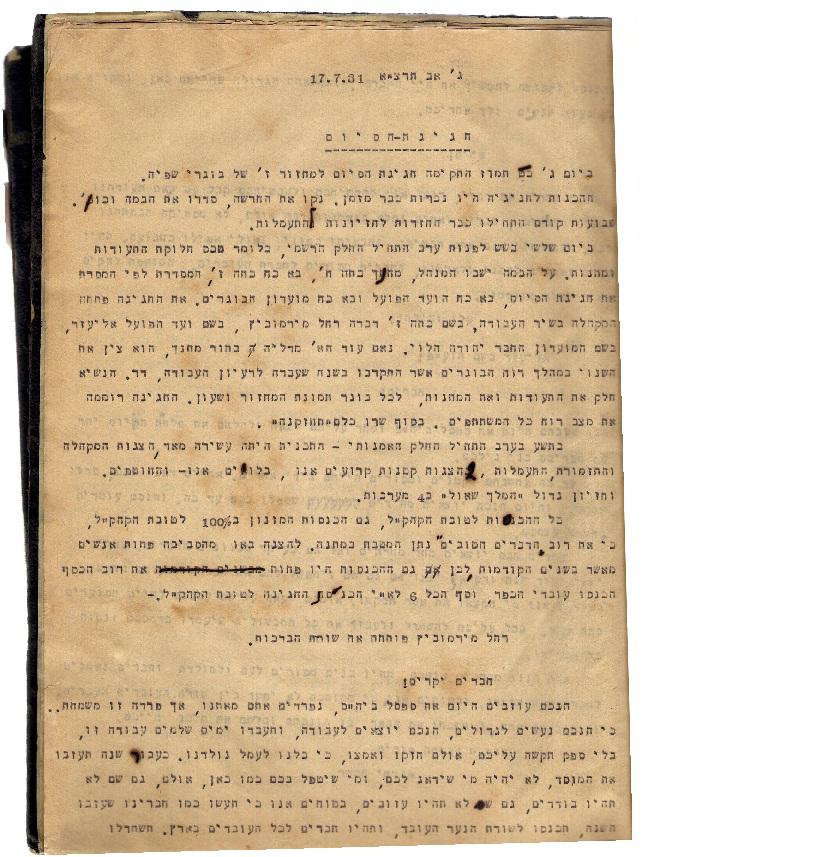 ג' אב תרצ"א 17.7.31
חגיגת-הסיום
ביום ג' תמוז התקימה חגיגת הסיום למחזור ז' של בוגרי שפיה.
ההכנות לחגיגה היו נכרות כבר מזמן. נקו את החרשה, סדרו את הבמה וכו'.
שבועות קודם התחילו כבר החזרות לחזיונות להתעמלות.
ביום שלישי בשש לפנות ערב התחיל החלק הרשמי, כלומר טכס חלוקת התעודות
ומתנות. על הבמה ישבו המנהל, מחנך כתה ח', בא כח כתה ז', המסדרת לפי המסרת
את חגיגת הסיום, בא כח הועד הפועל ובא כח מועדון הבוגרים. את החגיגה פתחה
המקהלה בשיר העבודה. בשם כתה ז' דברה רחל מירמוביץ, בשם ועד הפועל אליעזר,
בשם המועדון החבר יהודה הלוי. נאם עוד הא' מדליה בתור מחנך, הוא ציין את
השנוי במהלך רוח הבוגרים אשר התקרבו בשנה שעברה לרעיון העבודה, דר. הנשיא
חלק את התעודות ואת המתנות, לכל בוגר תמונת המחזור ושעון. החגיגה רוממה
את מצב רוח כל המשתתפים. בסוף שרו כלם "תחזקנה".
בתשע בערב התחיל החלק האמנותי - התכנית היתה עשירה מאד, הצגות המקהלה
והתזמורת, התעמלות, הצגות קטנות קרועים אנו, בלואים אנו- והחוטפים.
וחזיון גדול "המלך שאול" ב4 מערכות.
כל ההכנסות לטובת הקהק"ל, גם הכנסות המזנון ב100% לטובת הקהק"ל,
כי את רוב הדברים הטובים נתן המטבח במתנה. להצגה באו מהסביבה פחות אנשים
מאשר בשנים הקודמות, לכן גם ההכנסות היו פחות מבשנים הקודמות את רוב הכסף
הכנסו עובדי הכפר, וסך הכל 6 לא"י הכניסה החגיגה לטובת הקהק"ל.-
רחל מירמוביץ פותחת את שורת הברכות.
חברים יקרים!
הנכם עוזבים היום את ספסל ביה"ס, נפרדים אתם מאתנו, אך פרדה זו משמחת..
כי הנכם נעשים לגדולים, הנכם יוצאים לעבודה, ותעבדו ימים שלמים עבודה זו,
בלי ספק תקשה עליכם, אולם חזקו ואמצו, כי כלנו לעמל נולדנו. כעבור שנה תעזבו
את המוסד, לא יהיה מי שידאג לכם, ומי שיטפל בכם כמו כאן, אולם, גם שם לא
תהיו בודדים, גם שם לא תהיו עזובים, בטוחים אנו כי תעשו כמו חברינו שעזבו
השנה, תכנסו לשורת הנוער העובד, ותהיו חברים לכל העובדים בארץ. תשתדלו